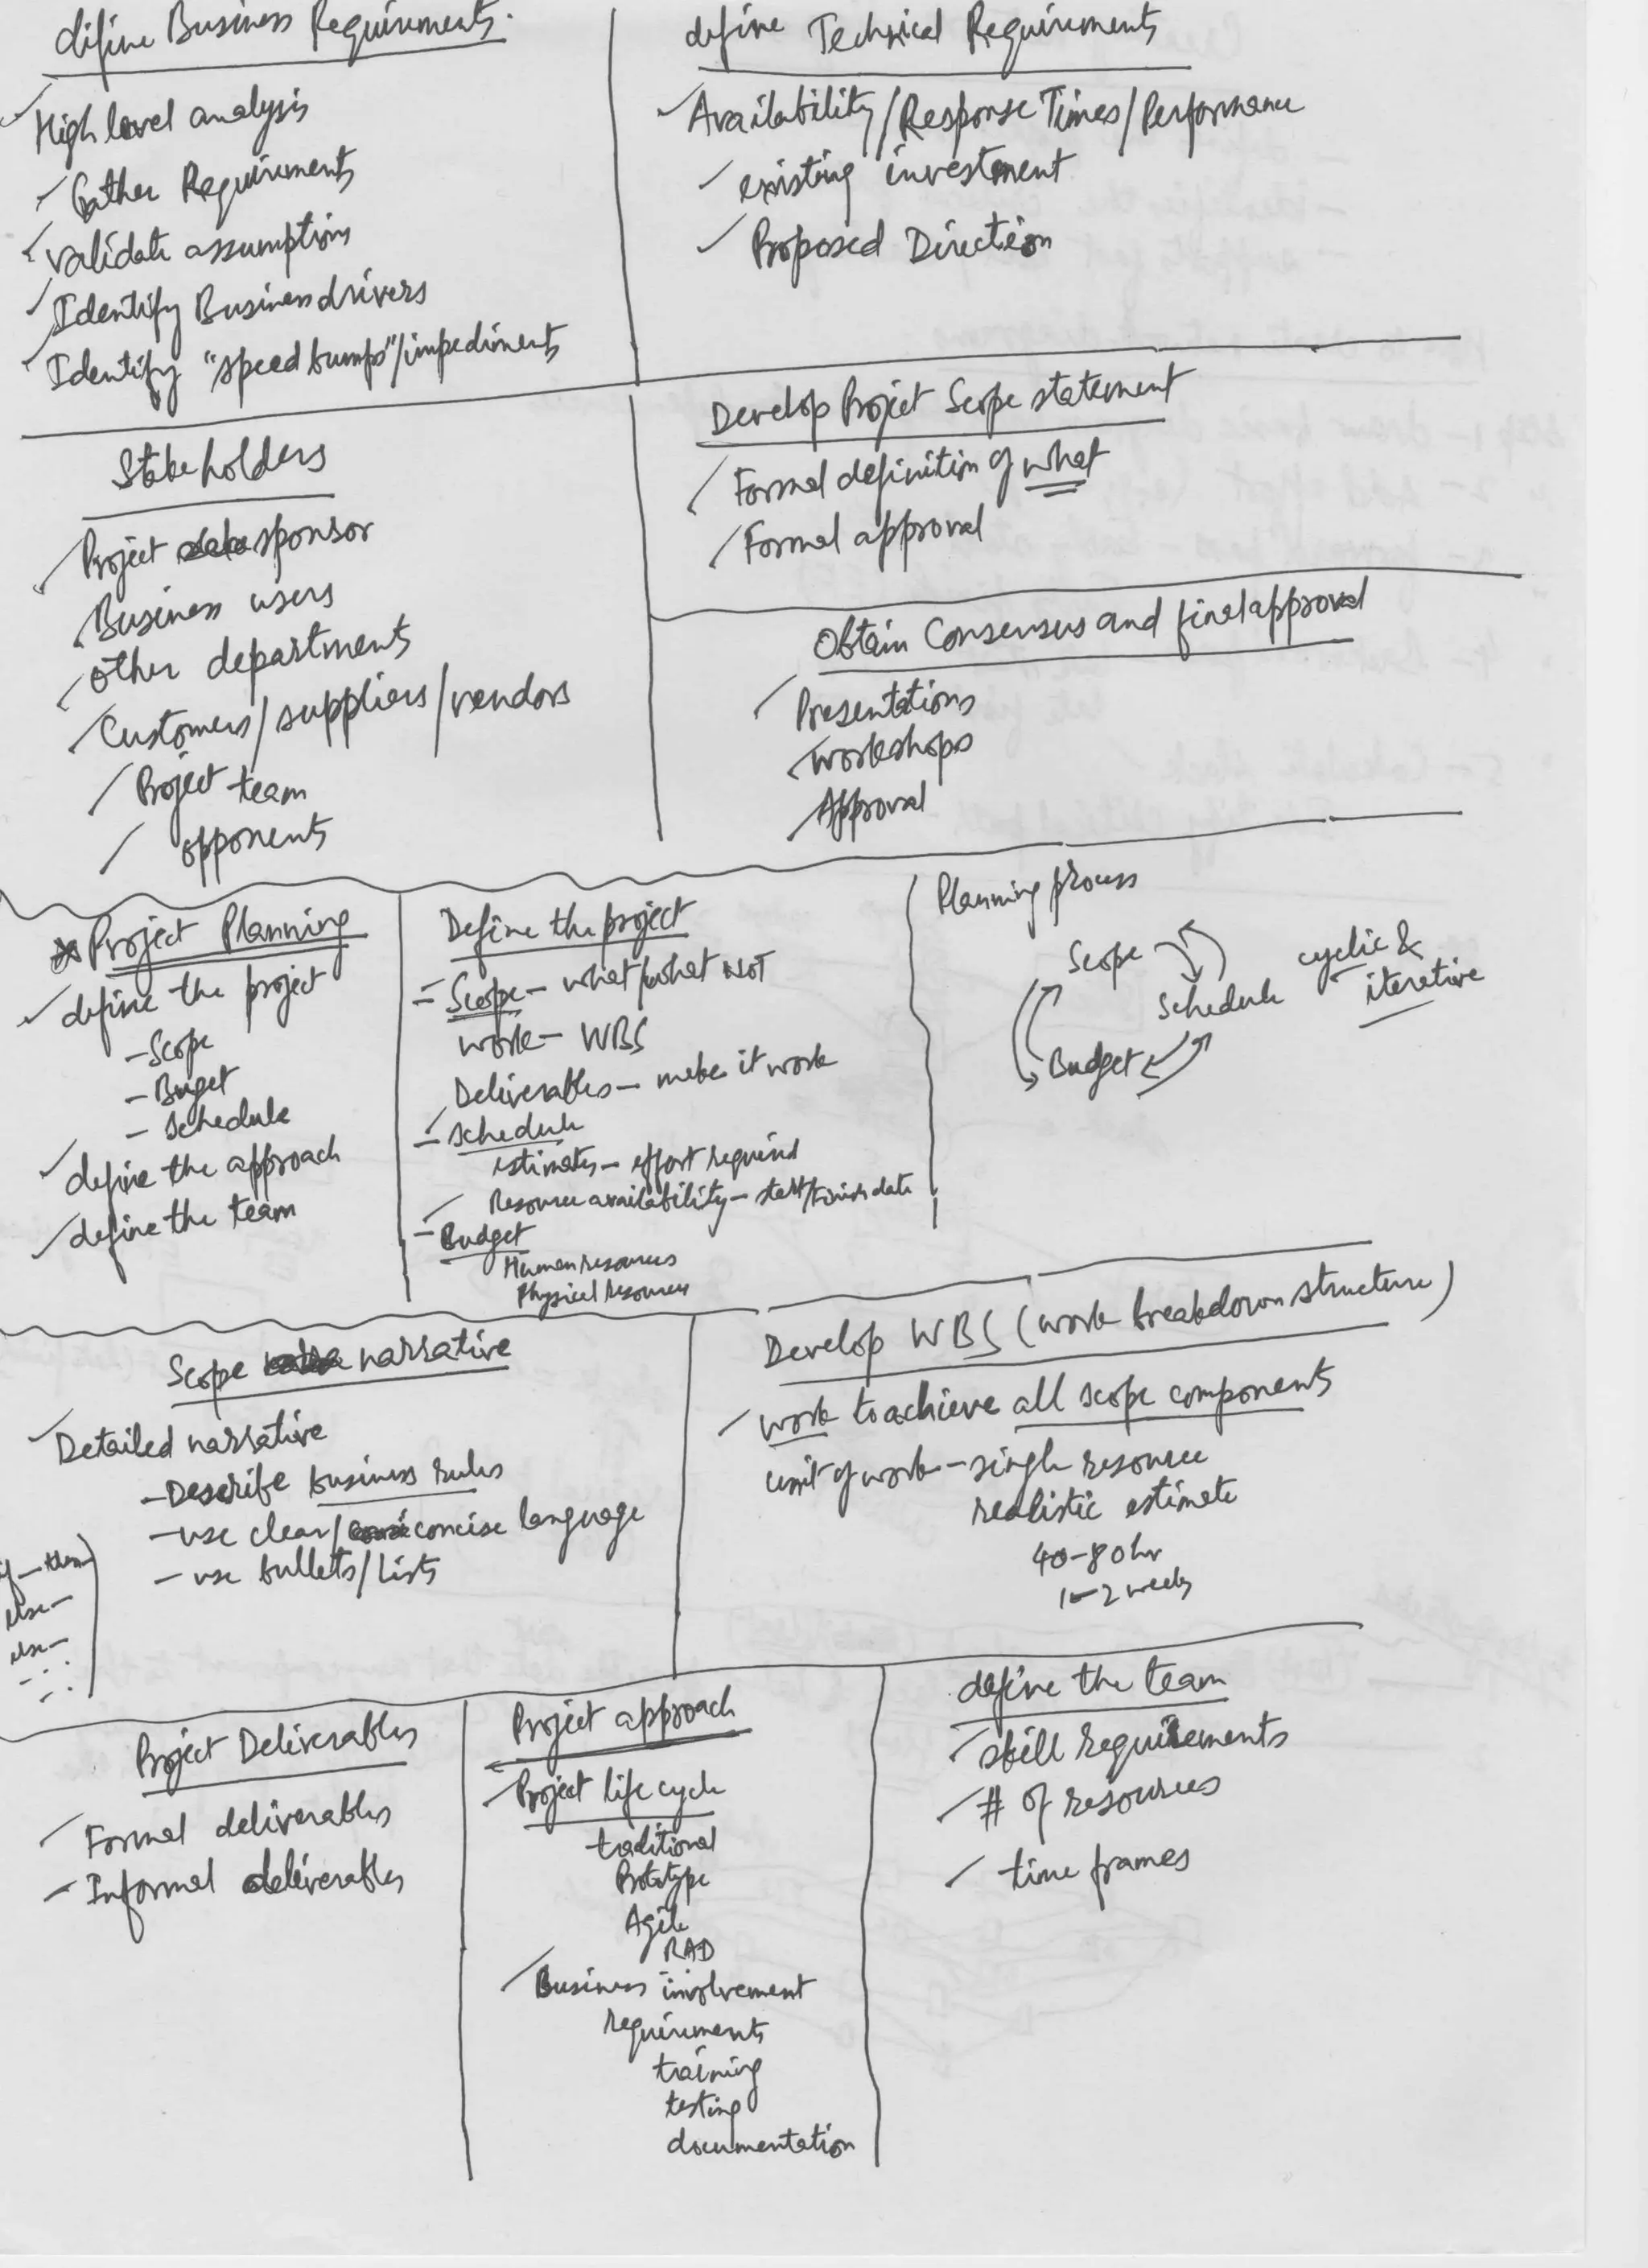 define Business Requirements.
High level analysis
Gather Requirements
validate assumptions
Identify Business drivers
Identify "speed bumps"/impediments
define Technical Requirements
Availability/Response Times/Performance
existing investment
Proposed Direction
Stakeholders
Project sponsor
Business users
other departments
Customers/suppliers/vendors
Project team
opponents
Develop Project Scope statement
Formal definition of what
Formal approval
Obtain Consensus and final approval
Presentations
workshops
Approval
Project Planning
define the project
- Scope
- Buget
- schedule
define the approach
define the team
Define the project
- Scope - what/what NOT
work - WBS
Deliverables - make it work
- schedule
estimates - effort required
Resource availability - start/finish date
- Budget
Human resources
Physical resources
Planning process
Scope
Schedule
Budget
cyclic &
iterative
Scope narrative
Detailed narrative
- Describe business rules
- use clear/concise language
- use bullets/Lists
if - then
else -
else -
Develop WBS (work breakdown structure)
work to achieve all scope components
unit of work - single resource
realistic estimate
40-80 hr
1-2 weeks
Project Deliverables
Formal deliverables
Informal deliverables
Project approach
Project life cycle
traditional
Prototype
Agile
RAD
Business involvement
requirements
training
testing
documentation
define the team
skill requirements
# of resources
time frames